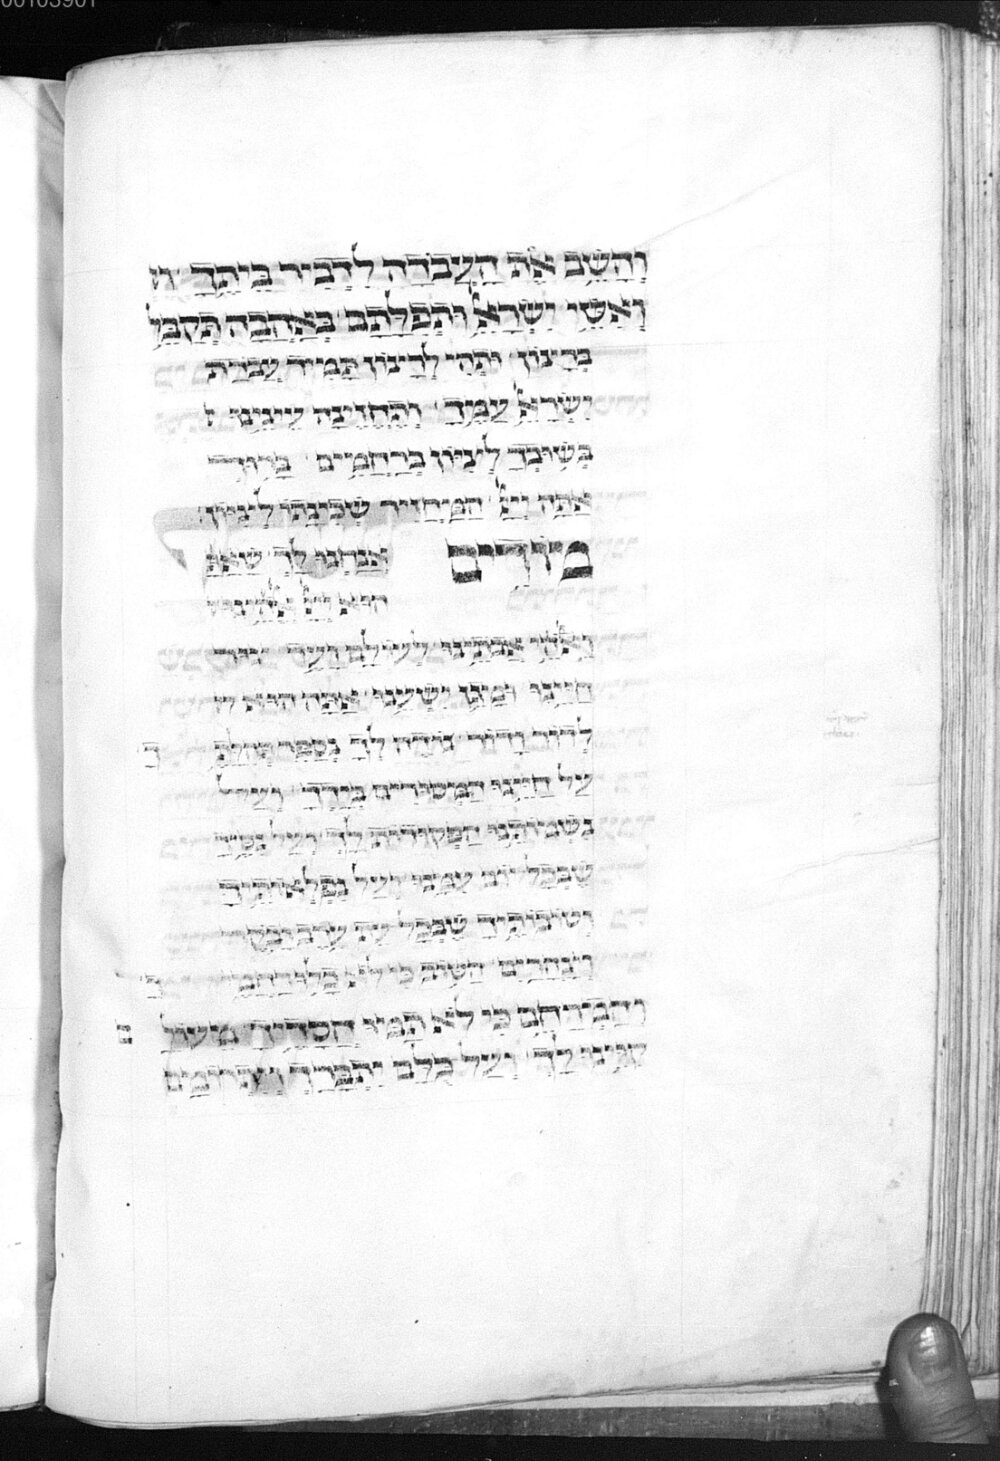 וְהָשֵׁב אֶת הָעֲבֹדָה לִדְבִיר בֵּיתֶךָ וִ
וְאִשֵּׁי יִשְׂרָאֵל וּתְפִלָּתָם בְּאַהֲבָה תְּקַבֵּל
בְּרָצוֹן וּתְהִי לְרָצוֹן תָּמִיד עֲבֹדַת
יִשְׂרָאֵל עַמֶּךָ וְתֶחֱזֶינָה עֵינֵינוּ
בְּשׁוּבְךָ לְצִיּוֹן בְּרַחֲמִים בָּרוּךְ
אַתָּה יְיָ הַמַּחֲזִיר שְׁכִינָתוֹ לְצִיּוֹן
מוֹדִים אֲנַחְנוּ לָךְ שֶׁאַתָּ
הוּא יְיָ אֱלֹהֵינוּ
וֵאלֹהֵי אֲבֹתֵינוּ לְעוֹלָם וָעֶד צוּר
חַיֵּינוּ וּמָגֵן יִשְׁעֵנוּ אַתָּה הוּא
לְדוֹר וָדוֹר נוֹדֶה לְךָ נְסַפֵּר תְּהִלָּתֶ ךָ
עַל חַיֵּינוּ הַמְּסוּרִים בְּיָדֶךָ וְעַל
נִשְׁמוֹתֵינוּ הַפְּקוּדוֹת לָךְ וְעַל נִסֶּיךָ
שֶׁבְּכָל יוֹם עִמָּנוּ וְעַל נִפְלְאוֹתֶיךָ
וְטוֹבוֹתֶיךָ שֶׁבְּכָל עֵת עֶרֶב וָבֹקֶר
וְצָהֳרַיִם הַטּוֹב כִּי לֹא כָלוּ רַחֲמֶי ךָ
וְהַמְרַחֵם כִּי לֹא תַמּוּ חֲסָדֶיךָ מֵעוֹלָ ם
קִוִּינוּ לָךְ וְעַל כֻּלָּם יִתְבָּרַךְ וְיִתְרוֹמַם